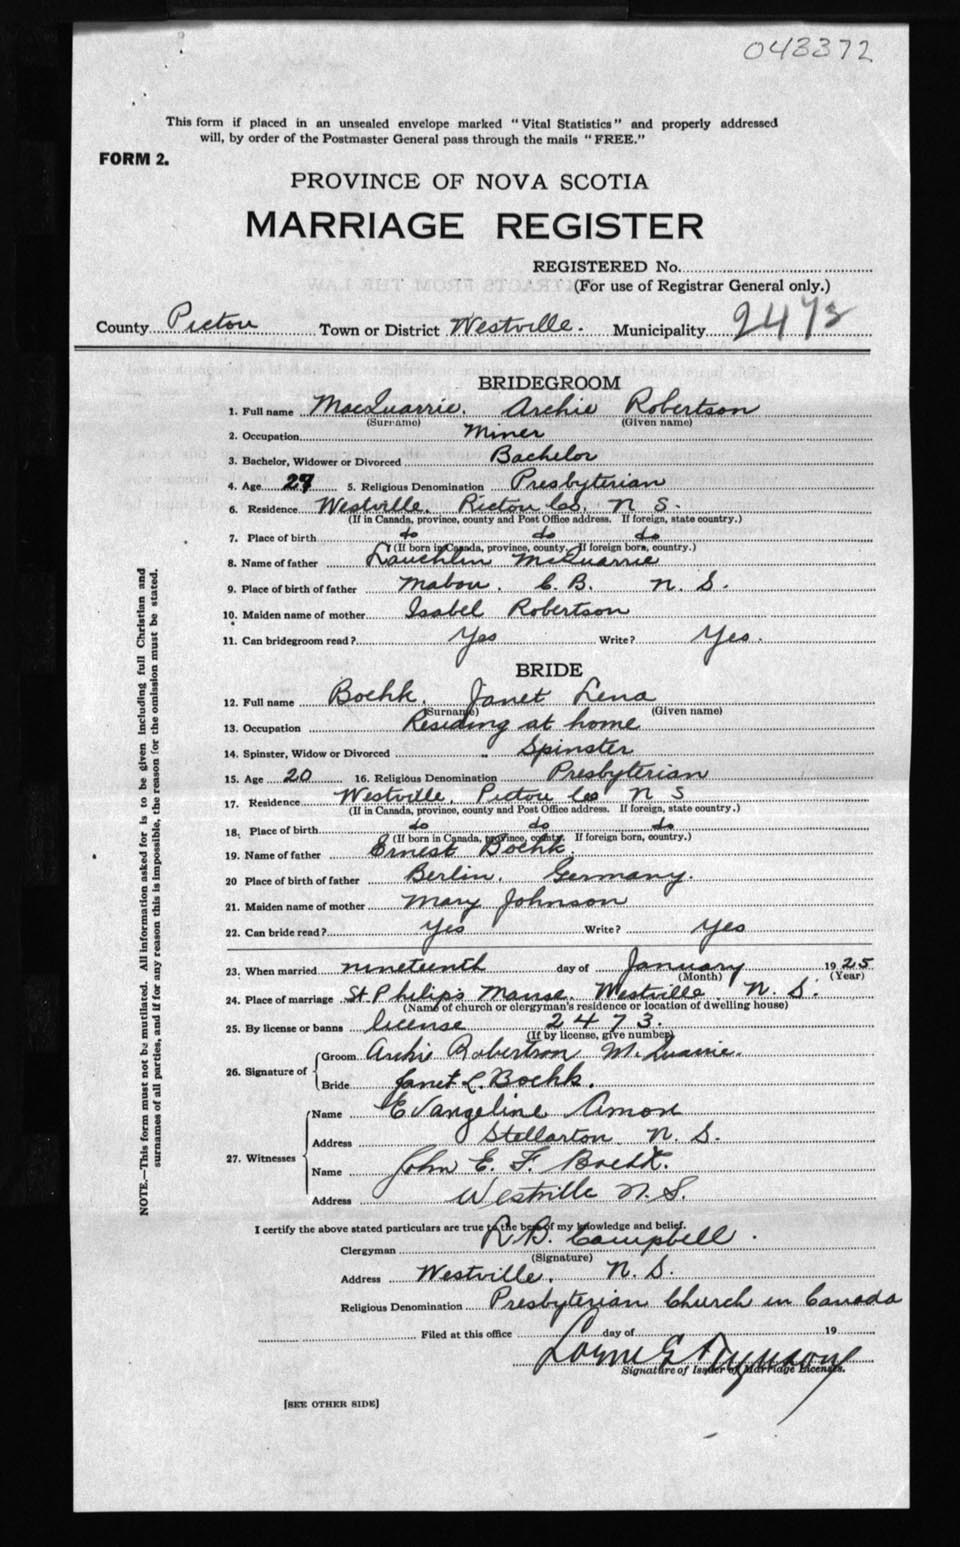 043372
This form if placed in an unsealed envelope marked "Vital Statistics" and properly addressed
will, by order of the Postmaster General pass through the mails "FREE."
FORM 2.
PROVINCE OF NOVA SCOTIA
MARRIAGE REGISTER
REGISTERED No.
(For use of Registrar General only.)
County Pictou Town or District Westville. Municipality 2473
BRIDEGROOM
1. Full name MacQuarrie, Archie Robertson
(Surname) (Given name)
2. Occupation Miner
3. Bachelor, Widower or Divorced Bachelor
4. Age 27 5. Religious Denomination Presbyterian
6. Residence Westville, Pictou Co, N S.
(If in Canada, province, county and Post Office address. If foreign, state country.)
7. Place of birth do do do
(If born in Canada, province, county. If foreign born, country.)
8. Name of father Lauchlin McQuarrie
9. Place of birth of father Mabou, C. B. N. S.
10. Maiden name of mother Isabel Robertson
11. Can bridegroom read? Yes Write? Yes.
BRIDE
12. Full name Boehk, Janet Lena
(Surname) (Given name)
13. Occupation Residing at home
14. Spinster, Widow or Divorced Spinster
15. Age 20 16. Religious Denomination Presbyterian
17. Residence Westville, Pictou Co N S
(If in Canada, province, county and Post Office address. If foreign, state country.)
18. Place of birth do do do
(If born in Canada, province, county. If foreign born, country.)
19. Name of father Ernest Boehk.
20 Place of birth of father Berlin, Germany.
21. Maiden name of mother Mary Johnson
22. Can bride read? Yes Write? Yes
23. When married nineteenth day of January 1925
(Month) (Year)
24. Place of marriage St Philip's Manse, Westville, N. S.
(Name of church or clergyman's residence or location of dwelling house)
25. By license or banns license 2473.
(If by license, give number)
26. Signature of
Groom Archie Robertson McQuarrie.
Bride Janet L. Boehk.
27. Witnesses
Name Evangeline Amon
Address Stellarton N. S.
Name John E. F. Boehk.
Address Westville N. S.
I certify the above stated particulars are true to the best of my knowledge and belief.
Clergyman R. B. Campbell.
(Signature)
Address Westville, N. S.
Religious Denomination Presbyterian Church in Canada
Filed at this office day of 19
Signature of Issuer of Marriage Licenses.
[SEE OTHER SIDE]
NOTE.—This form must not be mutilated. All information asked for is to be given including full Christian and
surnames of all parties, and if for any reason this is impossible, the reason for the omission must be stated.